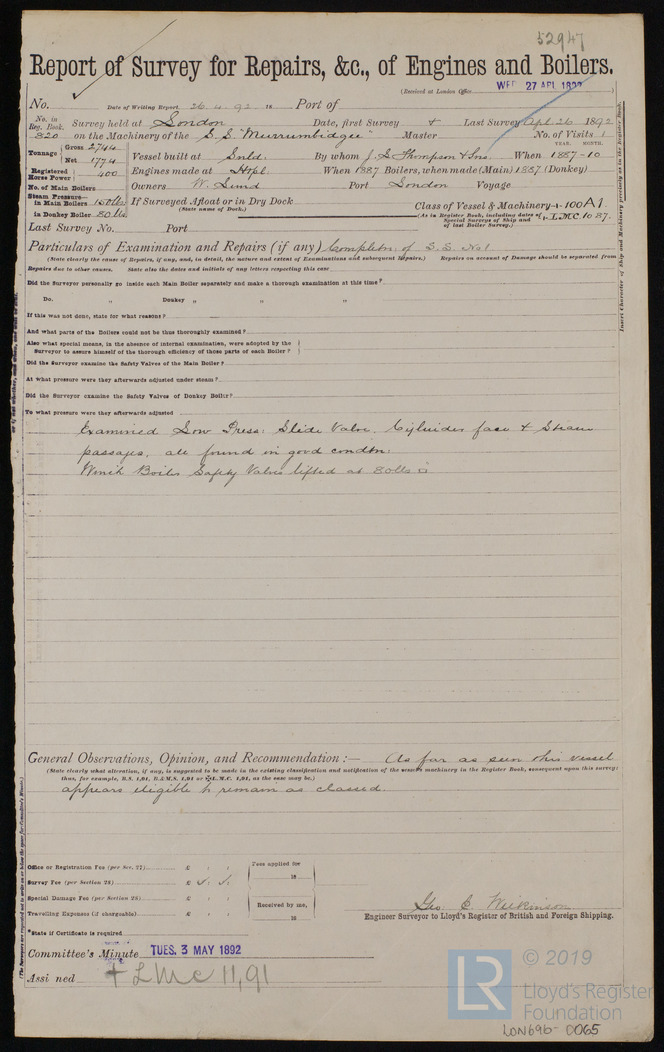 52947
Report of Survey for Repairs, &c., of Engines and Boilers.
(Received at London Office WED 27 APL 1892 )
No. Date of Writing Report 26.4.92 18 Port of
No. in Reg. Book. Survey held at London Date, first Survey & Last Survey Apl. 26 1892
820 on the Machinery of the S.S. "Murrumbidgee" Master No. of Visits 1
YEAR. MONTH.
Tonnage Gross 2744 Net 1774 Vessel built at Snld. By whom J. L. Thompson & Sons When 1887-10
Registered Horse Power 400 Engines made at Htpl. When 1887 Boilers, when made (Main) 1887 (Donkey)
No. of Main Boilers Owners W. Lund Port London Voyage
Steam Pressure in Main Boilers 150 lbs If Surveyed Afloat or in Dry Dock Class of Vessel & Machinery 100A1.
(State name of Dock.) (As in Register Book, including dates of Special Surveys of Ship and of last Boiler Survey.) L.M.C. 10 87.
in Donkey Boiler 80 lbs.
Last Survey No. Port
Particulars of Examination and Repairs (if any) Completion of S.S. No 1
(State clearly the cause of Repairs, if any, and, in detail, the nature and extent of Examinations and subsequent Repairs.) Repairs on account of Damage should be separated from
Repairs due to other causes. State also the dates and initials of any letters respecting this case
Did the Surveyor personally go inside each Main Boiler separately and make a thorough examination at this time?
Do. „ Donkey „ „ „
If this was not done, state for what reasons?
And what parts of the Boilers could not be thus thoroughly examined?
Also what special means, in the absence of internal examination, were adopted by the
Surveyor to assure himself of the thorough efficiency of those parts of each Boiler?
Did the Surveyor examine the Safety Valves of the Main Boiler?
At what pressure were they afterwards adjusted under steam?
Did the Surveyor examine the Safety Valves of Donkey Boiler?
To what pressure were they afterwards adjusted
Examined Low Press: Slide Valve, Cylinder face & Steam
passages, all found in good condtn:
Winch Boiler Safety Valves lifted at 80lbs □
General Observations, Opinion, and Recommendation :— As far as seen this vessel
(State clearly what alteration, if any, is suggested to be made in the existing classification and notification of the vessel's machinery in the Register Book, consequent upon this survey:
thus, for example, B.S. 1,91, B.&M.S. 1,91 or ✠L.M.C. 1,91, as the case may be.)
appears eligible to remain as classed.
Office or Registration Fee (per Sec. 27) £ : : Fees applied for
18
Survey Fee (per Section 28) £
Special Damage Fee (per Section 28) £ : : Received by me,
Travelling Expenses (if chargeable) £ : : 18
Geo. C. Wilkinson
Engineer Surveyor to Lloyd's Register of British and Foreign Shipping.
*State if Certificate is required
Committee's Minute TUES. 3 MAY 1892
Assigned + LMC 11,91
Insert Character of Ship and Machinery precisely as in the Register Book.
© 2019
LR Lloyd's Register
Foundation
LON696-0065